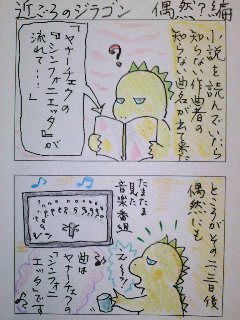 近ごろのジラゴン　偶然?編
小説を読んでいたら
知らない作曲者の
知らない曲名が出てきた
『ヤナーチェクの
『シンフォニエッタ』が
流れて・・・』
?
ところがその二、三日後
偶然にも
たまたま
見た
音楽番組
えーっ?
曲は
ヤナーチェクの
『シンフォニ
エッタ』です